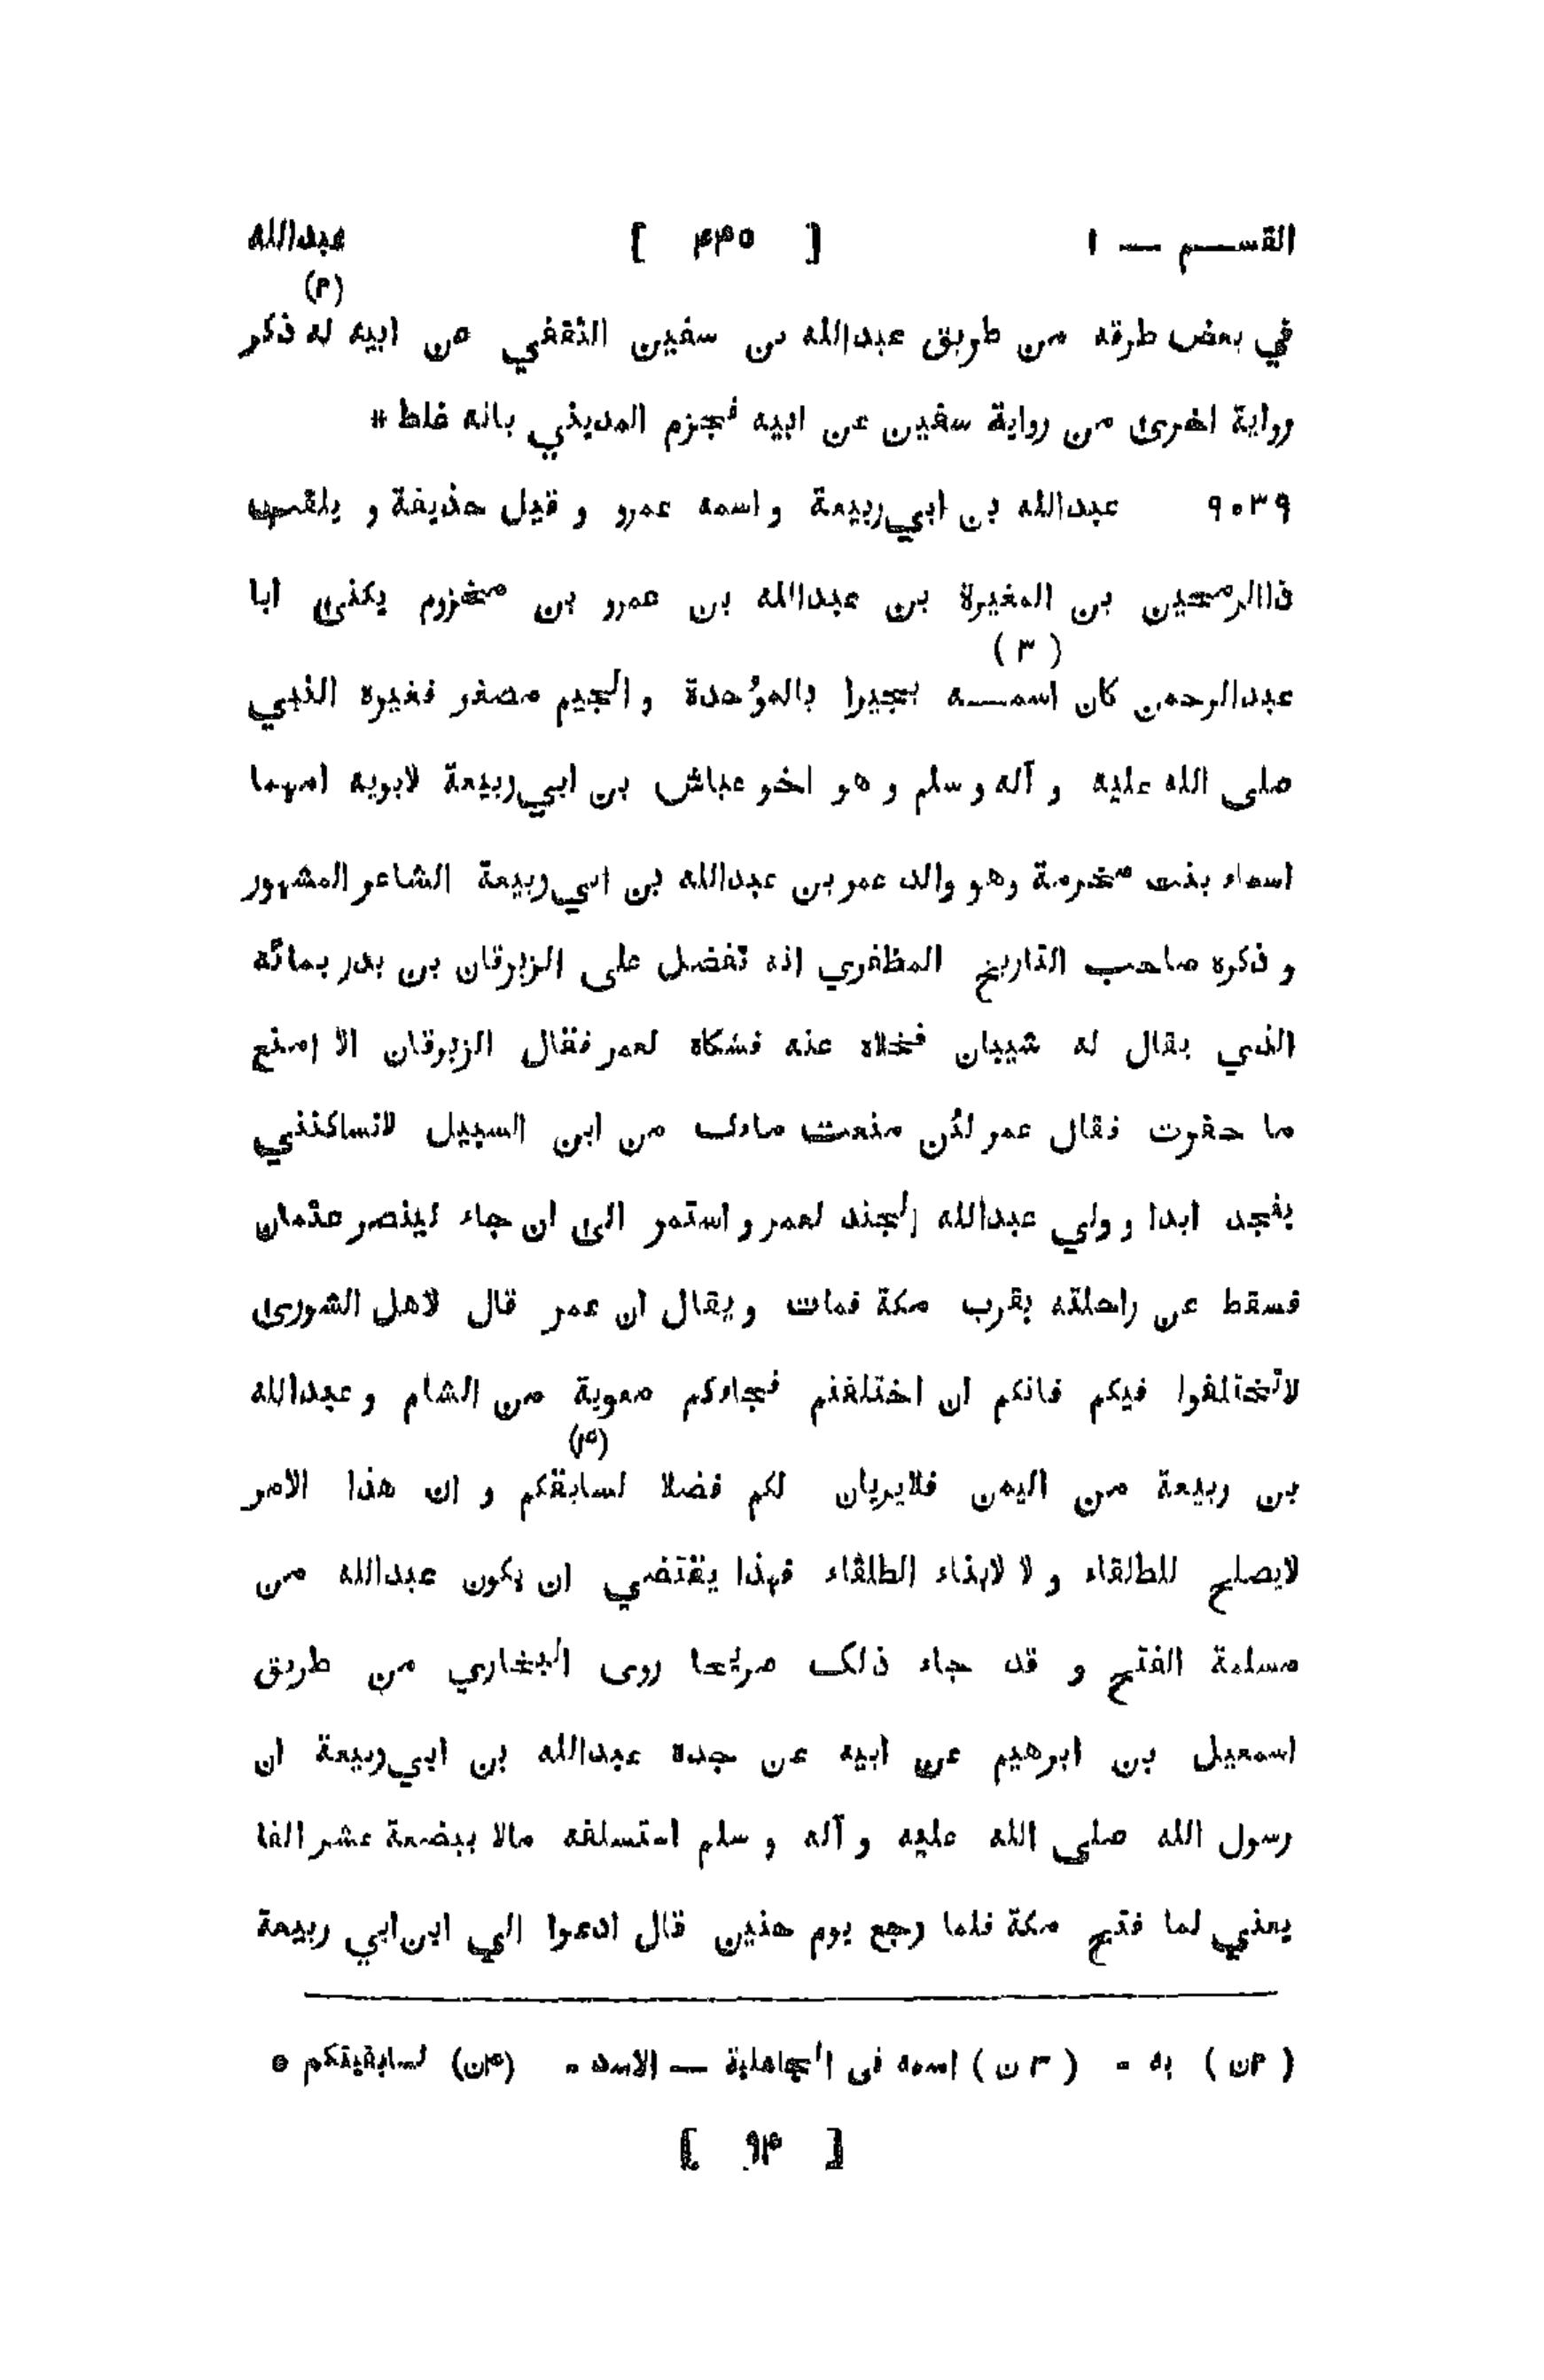 القسم — ١ [ ٢٣٥ ] عبدالله
(٢)
في بعض طرقه من طريق عبدالله بن سفين الثقفي عن ابيه له ذكر
رواية اخرى من رواية سفين عن ابيه فجزم المديني بانه غلط *
٩٠٣٩ عبدالله بن ابي ربيعة و اسمه عمرو و قيل حذيفة و يلقب
ذاالرمحين بن المغيرة بن عبدالله بن عمرو بن مخزوم يكنى ابا
( ٣ )
عبدالرحمن كان اسمه بجيرا بالموُحدة و الجيم مصغر فغيره النبي
صلى الله عليه و آله و سلم و هو اخو عياش بن ابي ربيعة لابويه امهما
اسماء بنت مخرمة وهو والد عمر بن عبدالله بن ابي ربيعة الشاعر المشهور
و ذكره صاحب التاريخ المظفري انه تفضل على الزبرقان بن بدر بمائه
الذي يقال له شيبان فخلاه عنه فشكاه لعمر فقال الزبرقان الا امنع
ما حفرت فقال عمر لئن منعت ماءك من ابن السبيل لاتساكنني
بنجد ابدا و ولي عبدالله الجند لعمر و استمر الى ان جاء لينصر عثمان
فسقط عن راحلته بقرب مكة فمات ويقال ان عمر قال لاهل الشورى
لاتختلفوا فيكم فانكم ان اختلفتم فجاءكم معوية من الشام و عبدالله
(٤)
بن ربيعة من اليمن فلايريان لكم فضلا لسابقكم و ان هذا الامر
لايصلح للطلقاء و لا لابناء الطلقاء فهذا يقتضي ان يكون عبدالله من
مسلمة الفتح و قد جاء ذلك صريحا روى البخاري من طريق
اسمعيل بن ابرهيم عن ابيه عن جده عبدالله بن ابي ربيعة ان
رسول الله صلى الله عليه و آله و سلم استسلفه مالا ببضعة عشر الفا
يعني لما فتح مكة فلما رجع يوم حنين قال ادعوا الي ابن ابي ربيعة
( ٢ن ) به - ( ٣ ن ) اسمه فى الجاهلية — الاسد - (٤ن) لسابقيتكم *
[ ٩٤ ]